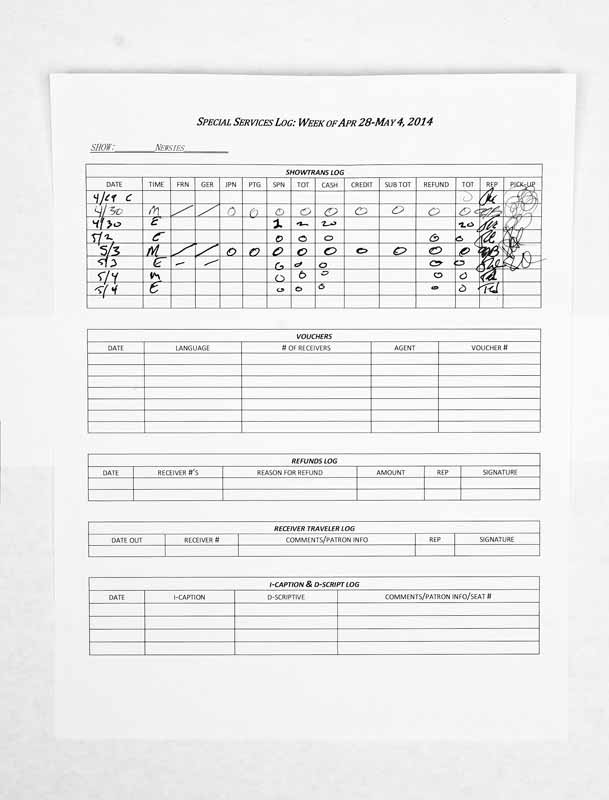 SPECIAL SERVICES LOG: WEEK OF APR 28-MAY 4, 2014
SHOW:________NEWSIES________
SHOWTRANS LOG
DATE TIME FRN GER JPN PTG SPN TOT CASH CREDIT SUB TOT REFUND TOT REP PICK-UP
4/29 0
4/30 M / / 0 0 0 0 0 0 0 0 0
4/30 E 1 2 20 20
5/2 E 0 0 0 0 0
5/3 M / / 0 0 0 0 0 0 0 0 0
5/3 E – – 0 0 0 0 0
5/4 M 0 0 0 0 0
5/4 E 0 0 0 0 0
VOUCHERS
DATE LANGUAGE # OF RECEIVERS AGENT VOUCHER #
REFUNDS LOG
DATE RECEIVER #'S REASON FOR REFUND AMOUNT REP SIGNATURE
RECEIVER TRAVELER LOG
DATE OUT RECEIVER # COMMENTS/PATRON INFO REP SIGNATURE
I-CAPTION & D-SCRIPT LOG
DATE I-CAPTION D-SCRIPTIVE COMMENTS/PATRON INFO/SEAT #